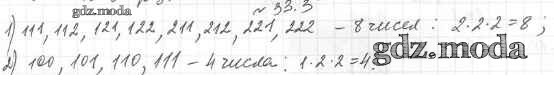 № 33.3
gdz.moda
1) 111, 112, 121, 122, 211, 212, 221, 222 – 8 чисел; 2·2·2=8;
2) 100, 101, 110, 111 – 4 числа: 1·2·2=4.
gdz.moda